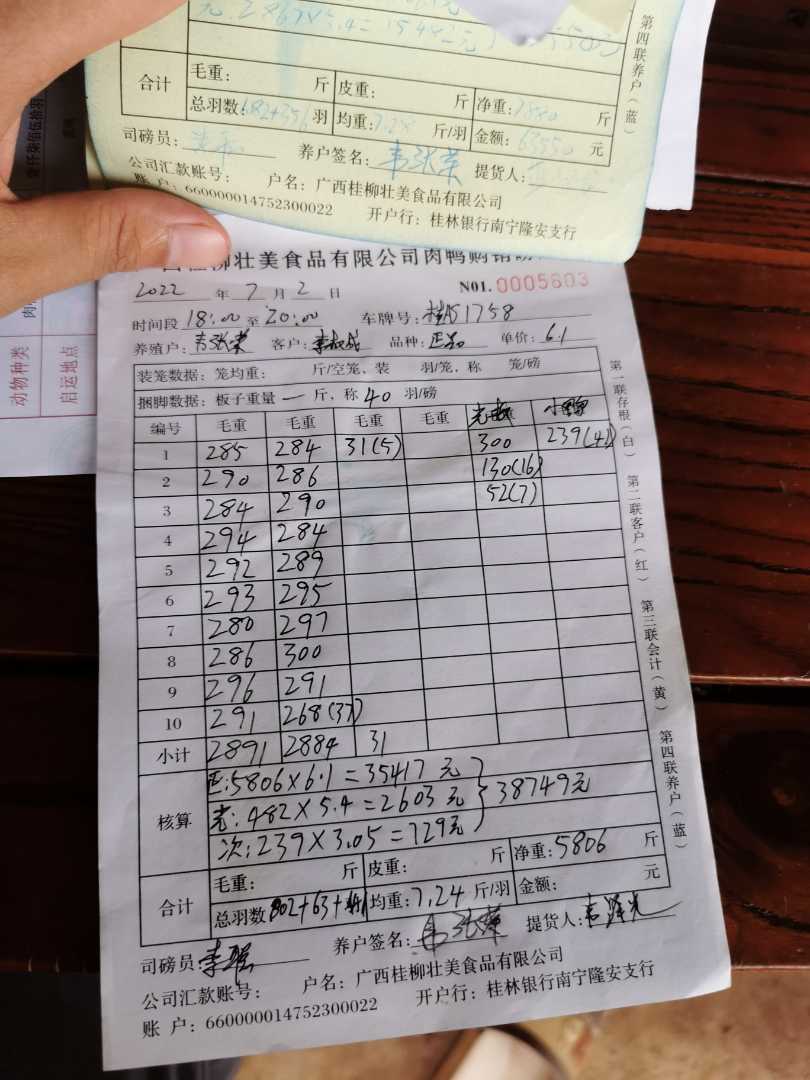 元:2867×5.4=15482元
合计 毛重: 斤 皮重: 斤 净重:7880 斤
总羽数:682+356 羽 均重:7.28 斤/羽 金额:63550 元
第四联养户(蓝)
司磅员: 养户签名:韦张荣 提货人:
公司汇款账号: 户名:广西桂柳壮美食品有限公司
账 户:660000014752300022 开户行:桂林银行南宁隆安支行
动物种类
启运地点
西桂柳壮美食品有限公司肉鸭购销
2022 年 7 月 2 日 N01. 0005603
时间段 18:00 至 20:00 车牌号:桂A51758
养殖户:韦张荣 客户:李 品种: 单价:6.1
装笼数据:笼均重: 斤/空笼,装 羽/笼,称 笼/磅
捆脚数据:板子重量 一 斤,称 40 羽/磅
编号 毛重 毛重 毛重 毛重
1 285 284 31(5) 300 239(42)
2 290 286 130(16)
3 284 290 52(7)
4 294 284
5 292 289
6 293 295
7 280 297
8 286 300
9 296 291
10 291 268(37)
小计 2891 2884 31
核算 正:5806×6.1=35417元
壳:482×5.4=2603元 38749元
次:239×3.05=729元
合计 毛重: 斤 皮重: 斤 净重:5806 斤
总羽数 802+63+ 均重:7.24 斤/羽 金额: 元
司磅员 养户签名:韦张荣 提货人:韦
公司汇款账号: 户名:广西桂柳壮美食品有限公司
账 户:660000014752300022 开户行:桂林银行南宁隆安支行
第一联存根(白) 第二联客户(红) 第三联会计(黄) 第四联养户(蓝)